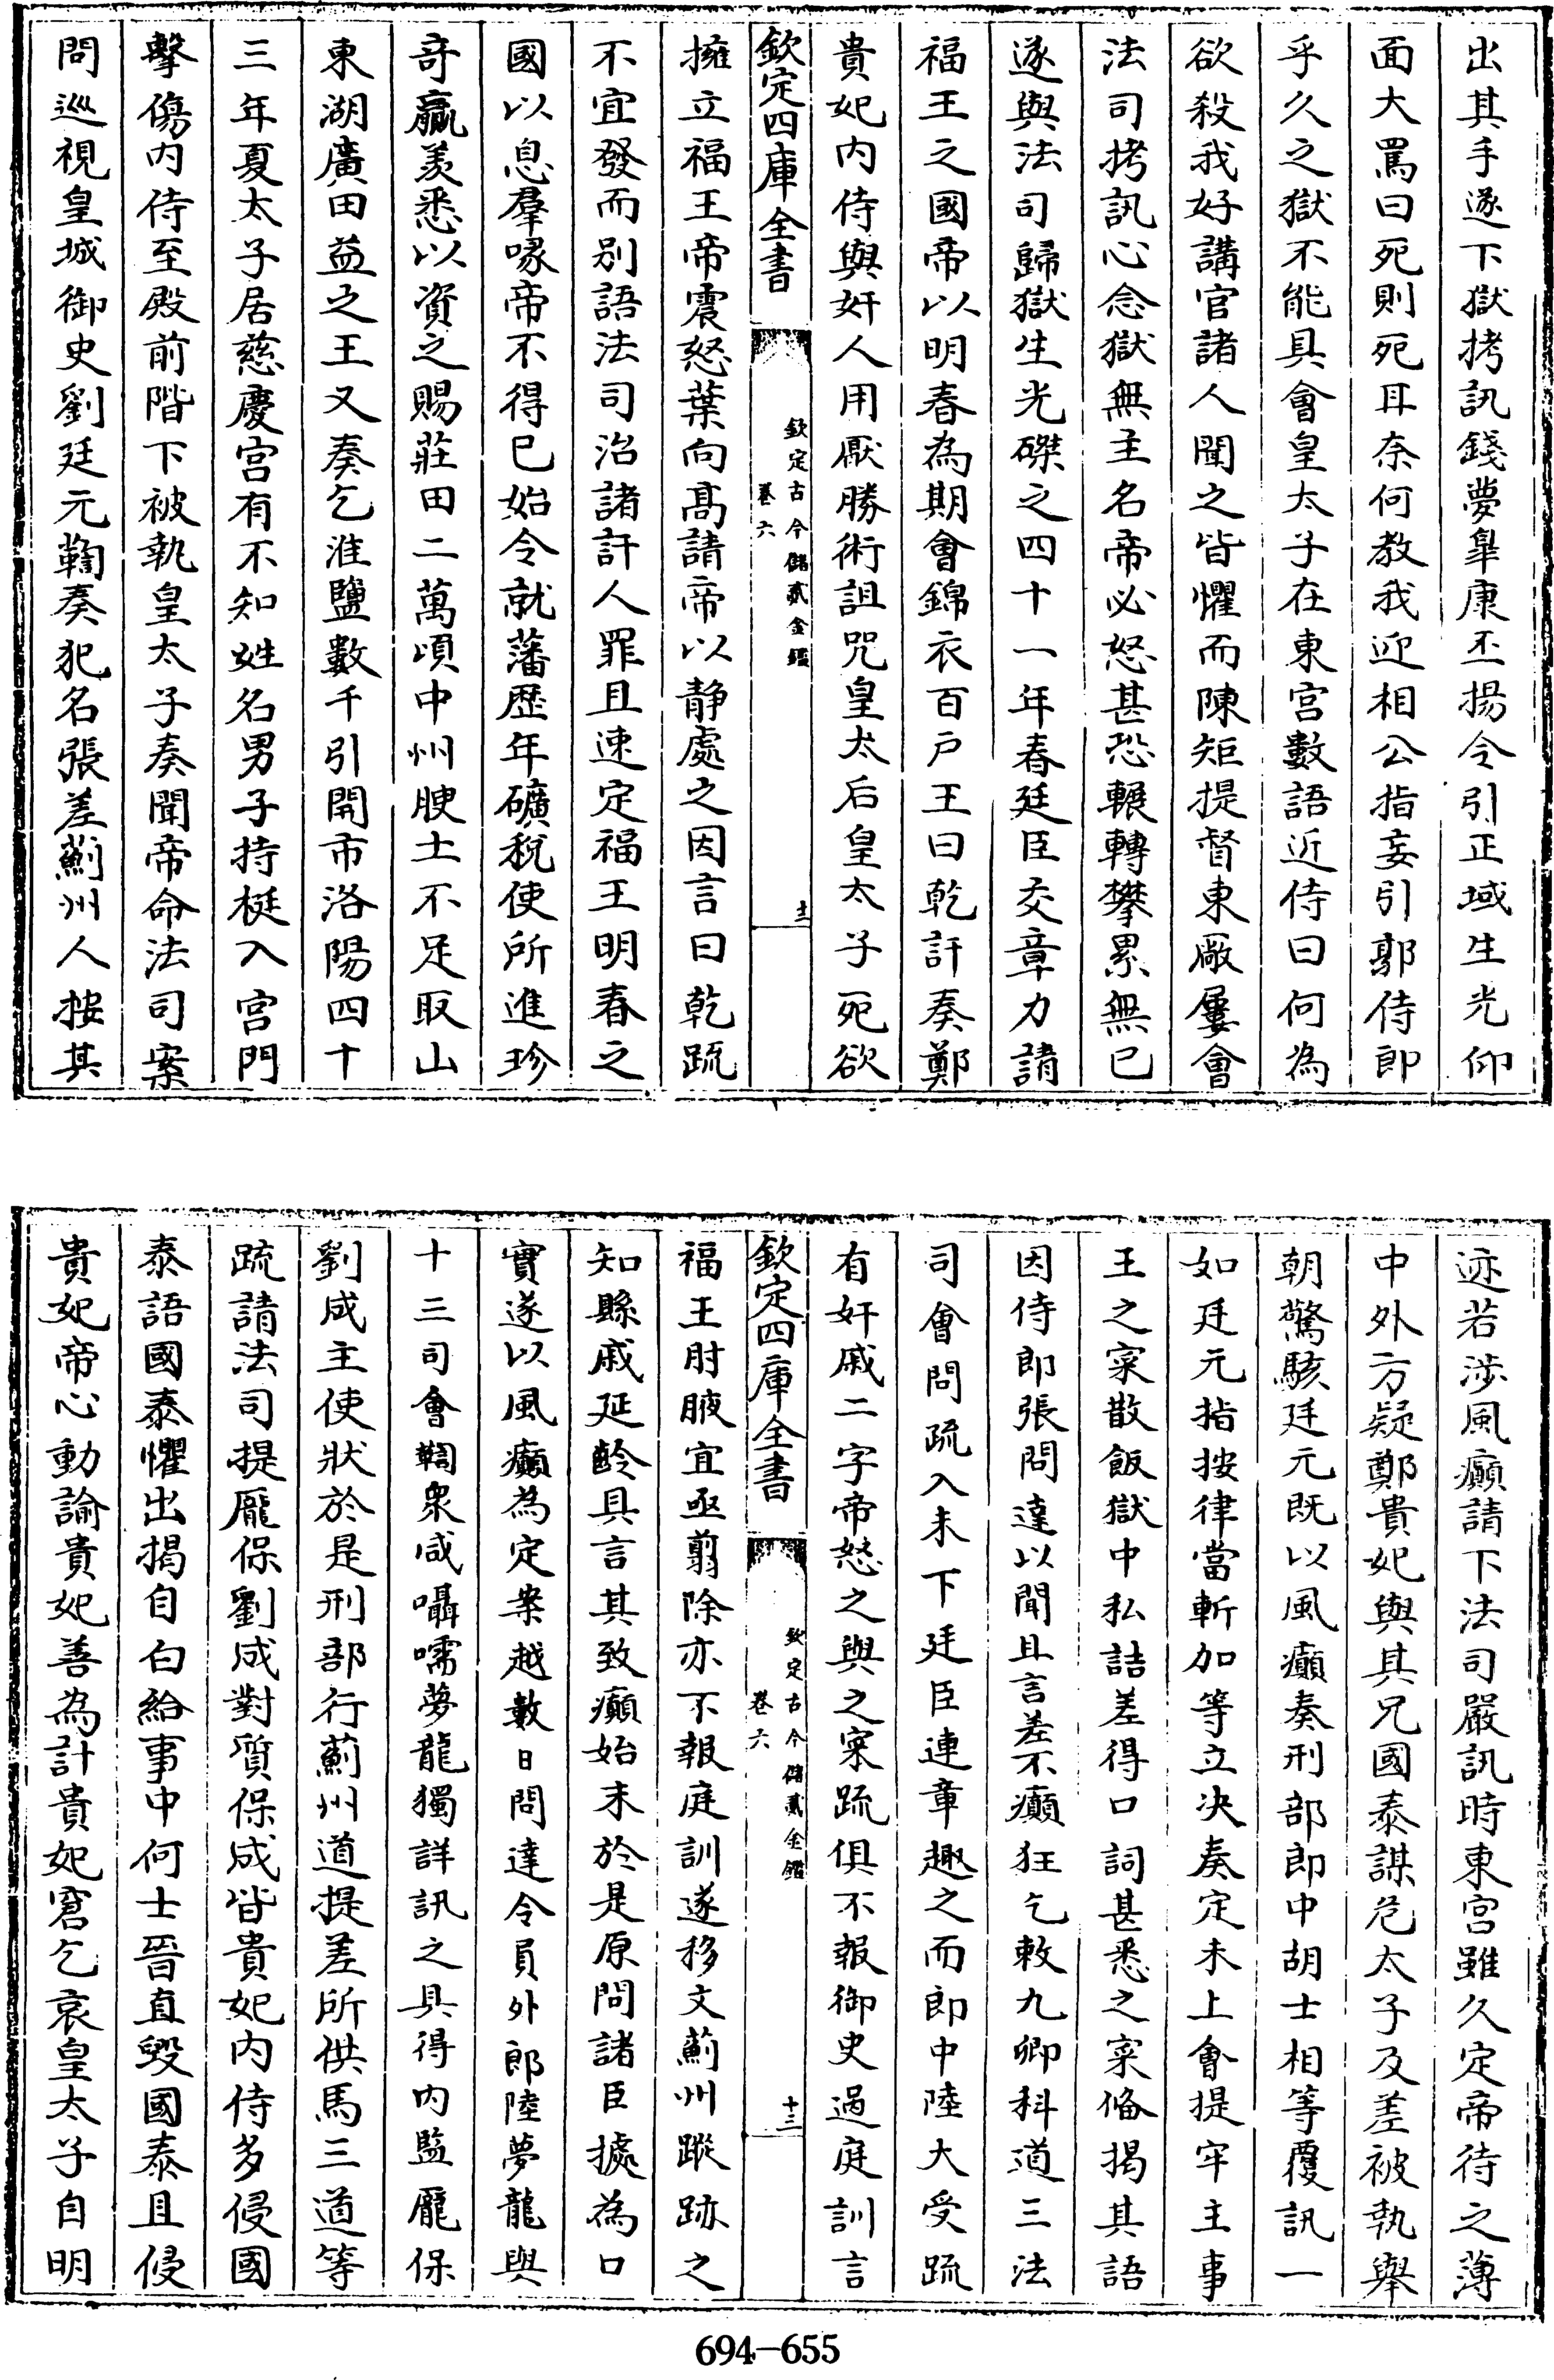 出其手遂下獄拷訊錢夢臯康丕揚令引正域生光仰
面大罵曰死則死耳奈何教我迎相公指妄引郭侍郎
乎久之獄不能具會皇太子在東宮數語近侍曰何為
欲殺我好講官諸人聞之皆懼而陳矩提督東廠屢會
法司拷訊心念獄無主名帝必怒甚恐輾轉攀累無已
遂與法司歸獄生光磔之四十一年春廷臣交章力請
福王之國帝以明春為期會錦衣百戸王曰乾訐奏鄭
貴妃内侍與奸人用厭勝術詛咒皇太后皇太子死欲
欽定四庫全書
欽定古今儲貳金鑑
卷六
十二
擁立福王帝震怒葉向髙請帝以静處之因言曰乾疏
不宜發而别語法司治諸訐人罪且速定福王明春之
國以息羣喙帝不得已始令就藩歴年礦稅使所進珍
竒贏羨悉以資之賜莊田二萬頃中州腴土不足取山
東湖廣田益之王又奏乞淮鹽數千引開市洛陽四十
三年夏太子居慈慶宫有不知姓名男子持梃入宫門
擊傷内侍至殿前階下被執皇太子奏聞帝命法司案
問巡視皇城御史劉廷元鞫奏犯名張差薊州人按其
迹若涉風癲請下法司嚴訊時東宫雖久定帝待之薄
中外方疑鄭貴妃與其兄國泰謀危太子及差被執舉
朝驚駭廷元既以風癲奏刑部郎中胡士相等覆訊一
如廷元指按律當斬加等立决奏定未上會提牢主事
王之寀散飯獄中私詰差得口詞甚悉之寀俻揭其語
因侍郎張問達以聞且言差不癲狂乞敕九卿科道三法
司會問疏入未下廷臣連章趣之而郎中陸大受疏
有奸戚二字帝怒之與之寀疏俱不報御史過庭訓言
欽定四庫全書
欽定古今儲貳金鑑
卷六
十三
福王肘腋宜亟翦除亦不報庭訓遂移文薊州蹤跡之
知縣戚延齡具言其致癲始末於是原問諸臣據為口
實遂以風癲為定案越數日問達令員外郎陸夢龍與
十三司會鞫衆咸囁嚅夢龍獨詳訊之具得内監龎保
劉成主使狀於是刑部行薊州道提差所供馬三道等
疏請法司提龎保劉成對質保成皆貴妃内侍多侵國
泰語國泰懼出揭自白給事中何士晉直毀國泰且侵
貴妃帝心動諭貴妃善為計貴妃窘乞哀皇太子自明
694-655